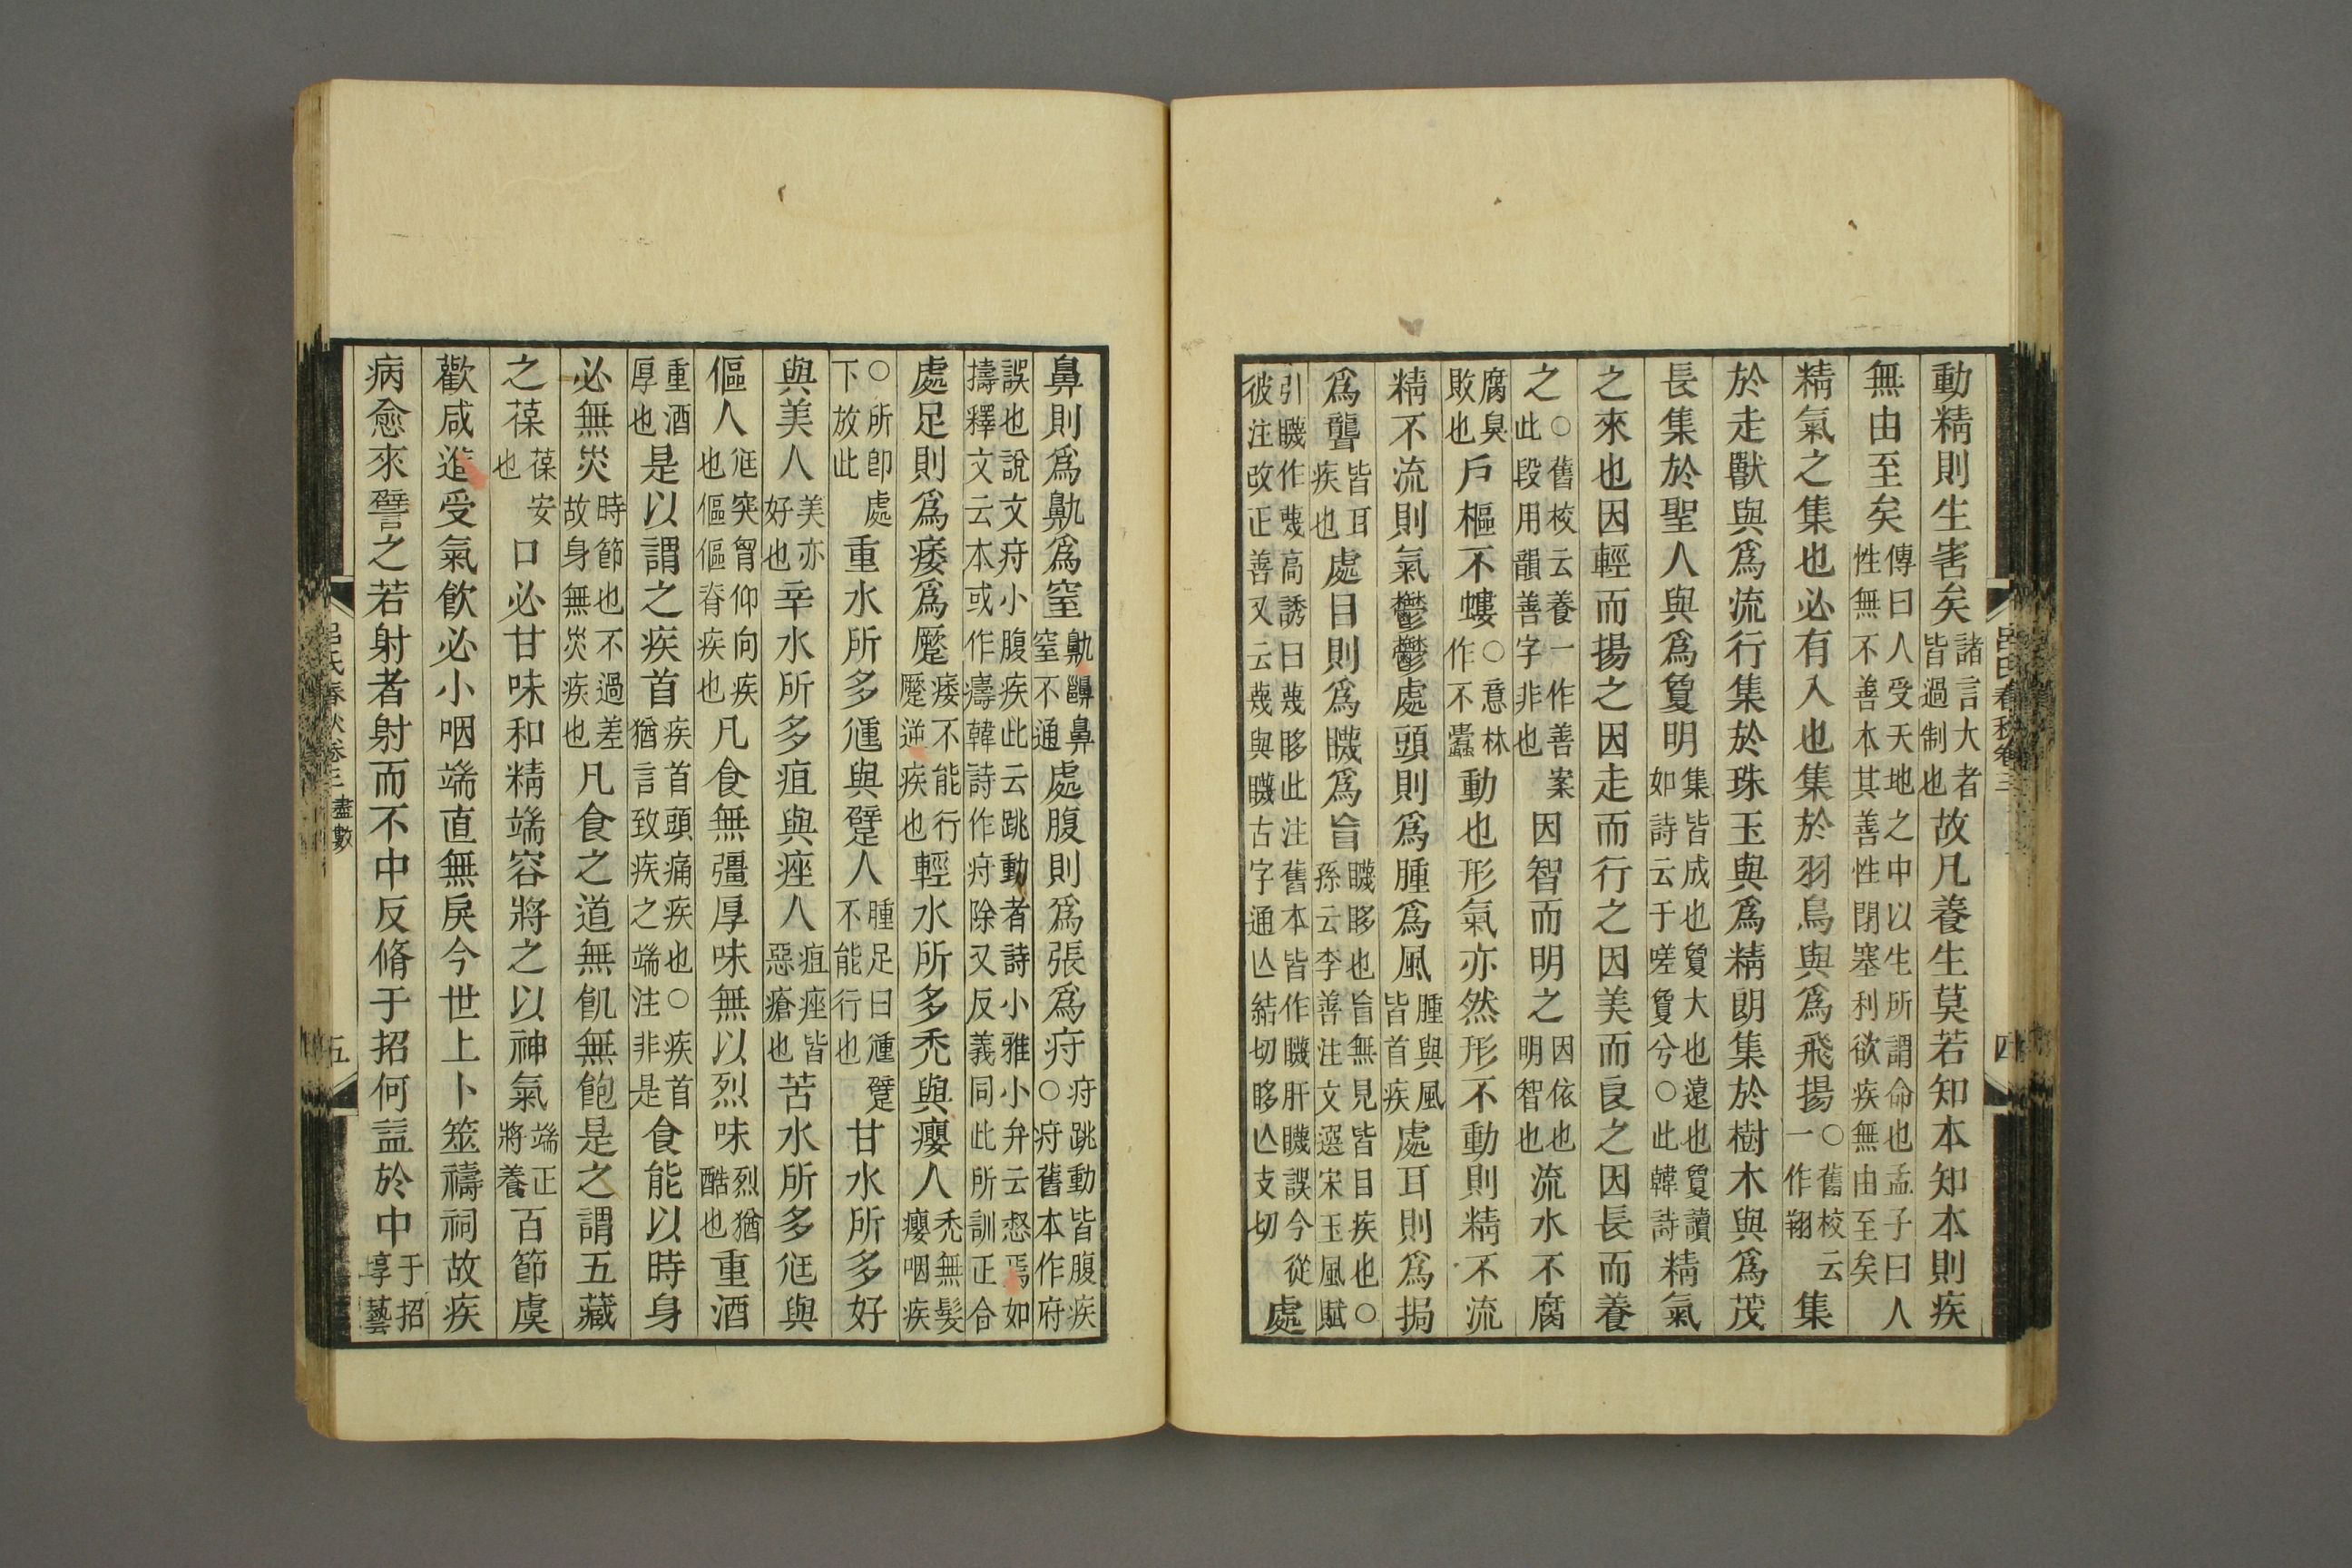 動精則生害矣諸言大者皆過制也故凡養生莫若知本知本則疾
無由至矣傳曰人受天地之中以生所謂命也孟子曰人性無不善本其善性閉塞利欲疾無由至矣
精氣之集也必有入也集於羽鳥與爲飛揚○舊校云一作翔集
於走獸與爲流行集於珠玉與爲精朗集於樹木與爲茂
長集於聖人與爲敻明集皆成也敻大也遠也敻讀如詩云于嗟敻兮○此韓詩精氣
之來也因輕而揚之因走而行之因美而良之因長而養
之○舊校云養一作善案此段用韻善字非也因智而明之因依也明智也流水不腐
腐臭敗也戶樞不螻○意林作不蠹動也形氣亦然形不動則精不流
精不流則氣鬱鬱處頭則爲腫爲風腫與風皆首疾處耳則爲挶
爲聾皆耳疾也處目則爲䁾爲盲䁾眵也盲無見皆目疾也○孫云李善注文選宋玉風賦
引䁾作蔑高誘曰蔑眵此注舊本皆作䁾肝䁾誤今從彼注改正善又云蔑與䁾古字通亾結切眵亾支切處
呂氏春秋卷三
四
鼻則爲鼽爲窒鼽齆鼻窒不通處腹則爲張爲疛疛跳動皆腹疾○疛舊本作府
誤也說文疛小腹疾此云跳動者詩小雅小弁云惄焉如擣釋文云本或作㿒韓詩作疛除又反義同此所訓正合
處足則爲痿爲蹷痿不能行蹷逆疾也輕水所多禿與癭人禿無髮癭咽疾
○所卽處下放此重水所多尰與躄人腫足曰尰躄不能行也甘水所多好
與美人美亦好也辛水所多疽與痤人疽痤皆惡瘡也苦水所多尫與
傴人尫突胷仰向疾也傴傴脊疾也凡食無彊厚味無以烈味烈猶酷也重酒
重酒厚也是以謂之疾首疾首頭痛疾也○疾首猶言致疾之端注非是食能以時身
必無災時節也不過差故身無災疾也凡食之道無飢無飽是之謂五藏
之葆葆安也口必甘味和精端容將之以神氣端正將養百節虞
歡咸進受氣飲必小咽端直無戾今世上卜筮禱祠故疾
病愈來譬之若射者射而不中反脩于招何益於中于招𡩡藝
呂氏春秋卷三 盡數
五